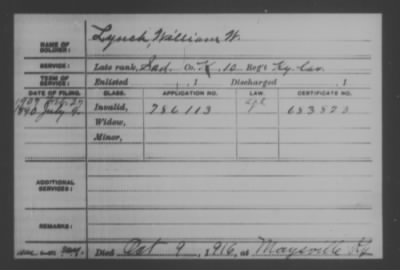 NAME OF SOLDIER: Lynch, William W.
SERVICE: Late rank, Sad. Co. K, 10 Reg't Ky. Cav.
TERM OF SERVICE: Enlisted , 1 Discharged , 1
DATE OF FILING. CLASS. APPLICATION NO. LAW. CERTIFICATE NO.
1907
1890 July 9. Invalid, 786113 683823
Widow,
Minor,
ADDITIONAL SERVICES:
REMARKS:
Died Oct 9, 1916, at Maysville Ky